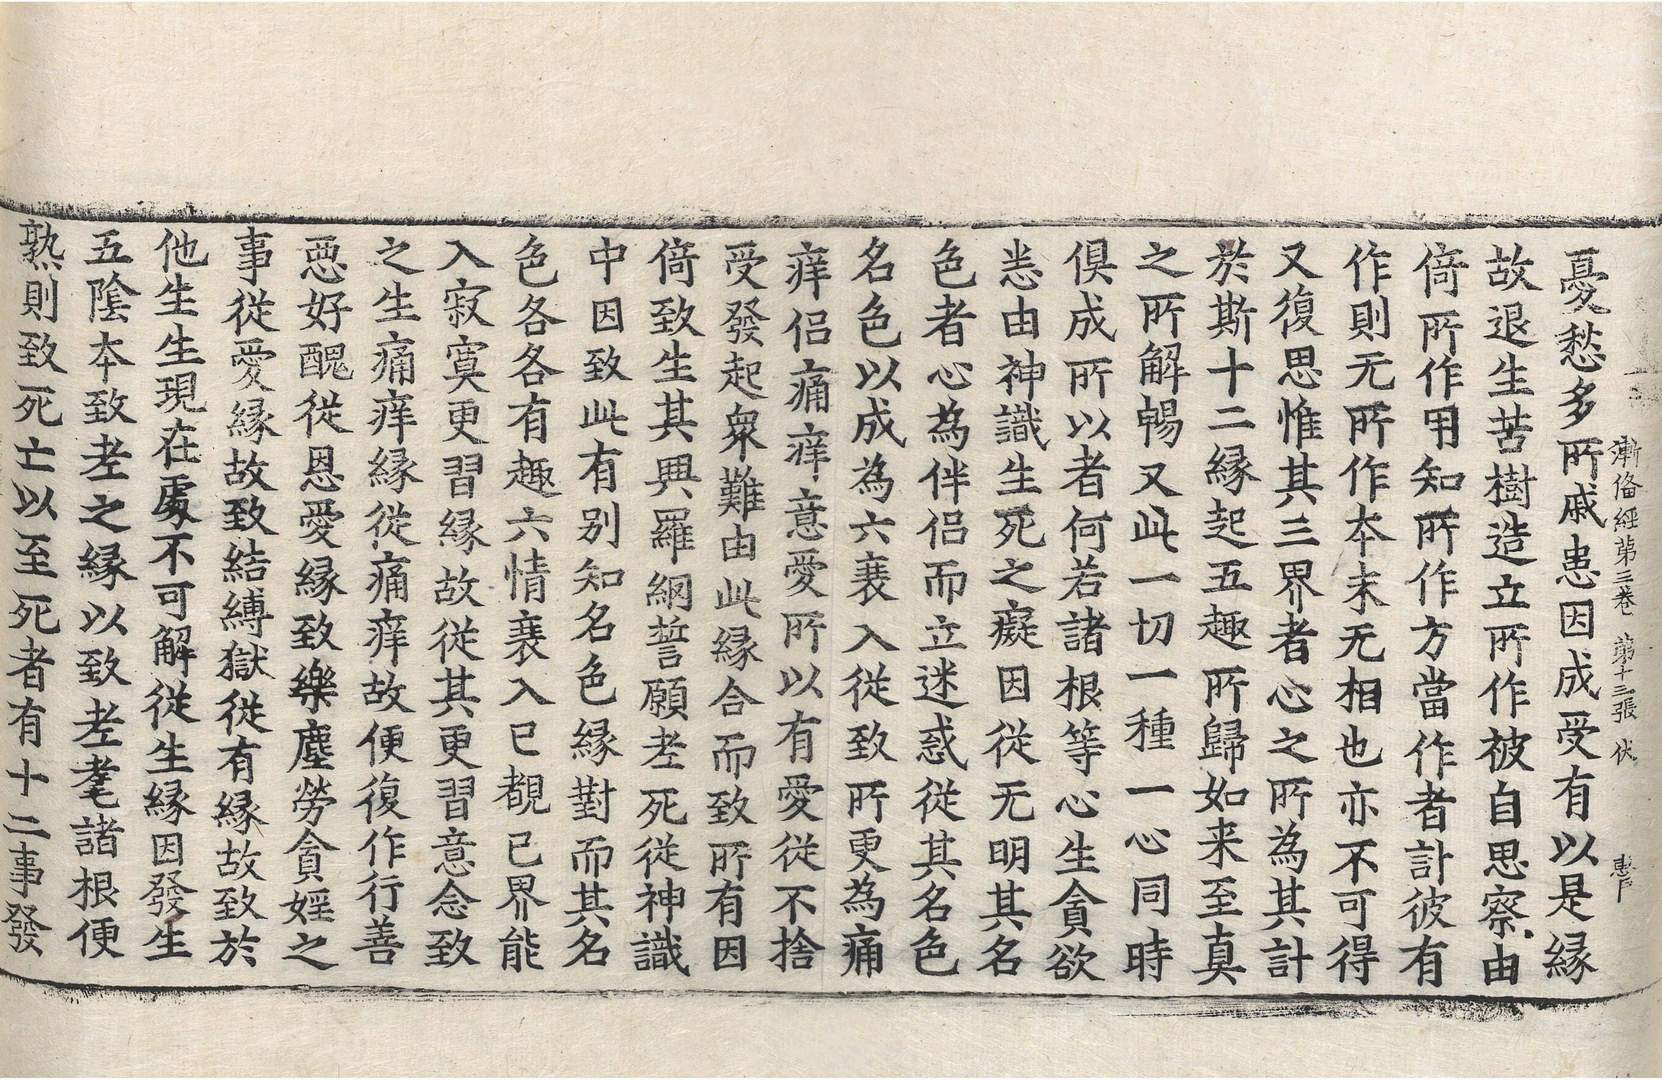 漸備經第三卷 第十三張 伏
憂愁多所慼患因成受有以是縁
故退生苦樹造立所作被自思察由
倚所作用知所作方當作者計彼有
作則无所作本末无相也亦不可得
又復思惟其三界者心之所為其計
於斯十二縁起五趣所歸如来至真
之所解暢又此一切一種一心同時
俱成所以者何若諸根等心生貪欲
恙由神識生死之癡因從无明其名
色者心為伴侣而立迷惑從其名色
名色以成為六衰入從致所更為痛
痒侣痛痒意愛所以有愛從不捨
受發起衆難由此縁合而致所有因
倚致生其興羅網誓願老死從神識
中因致此有别知名色縁對而其名
色各各有趣六情衰入已覩已界能
入寂寞更習縁故從其更習意念致
之生痛痒縁從痛痒故便復作行善
惡好醜從恩愛縁致樂塵勞貪婬之
事從愛縁故致結縛獄從有縁故致於
他生生現在處不可解從生縁因發生
五陰本致老之縁以致老耄諸根便
熟則致死亡以至死者有十二事發